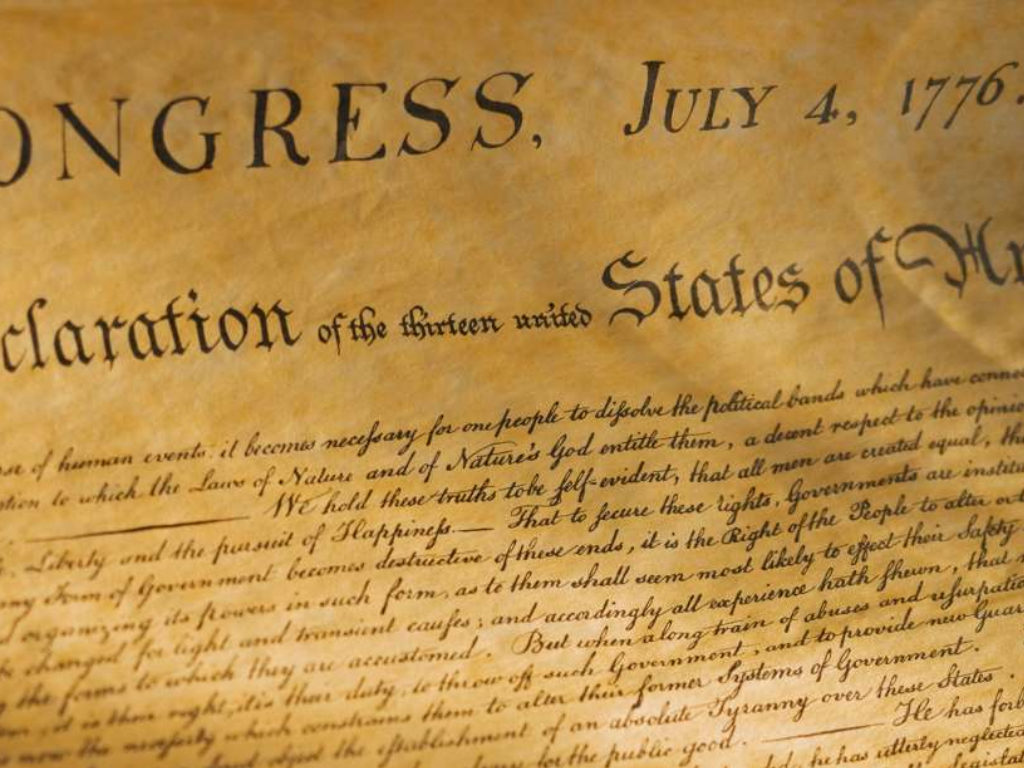 ONGRESS, JULY 4, 1776.
claration of the thirteen united States of Am
se of human events, it becomes necessary for one people to dissolve the political bands which have connec
tion to which the Laws of Nature and of Nature's God entitle them, a decent respect to the opinio
We hold these truths to be self-evident, that all men are created equal, tha
Liberty and the pursuit of Happiness.— That to secure these rights, Governments are institu
ny Form of Government becomes destructive of these ends, it is the Right of the People to alter or
organizing its powers in such form, as to them shall seem most likely to effect their Safety
changed for light and transient causes; and accordingly all experience hath shewn, that
the forms to which they are accustomed. But when a long train of abuses and usurpatio
it is their right, it is their duty, to throw off such Government, and to provide new Guar
now the necessity which constrains them to alter their former Systems of Government.
object the establishment of an absolute Tyranny over these States.
for the public good. — He has forb
he has utterly neglected